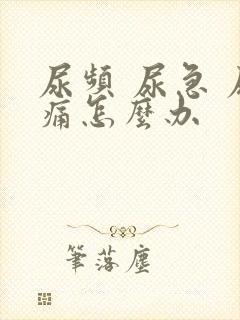 尿頻 尿急
痛怎麼办
筆落塵